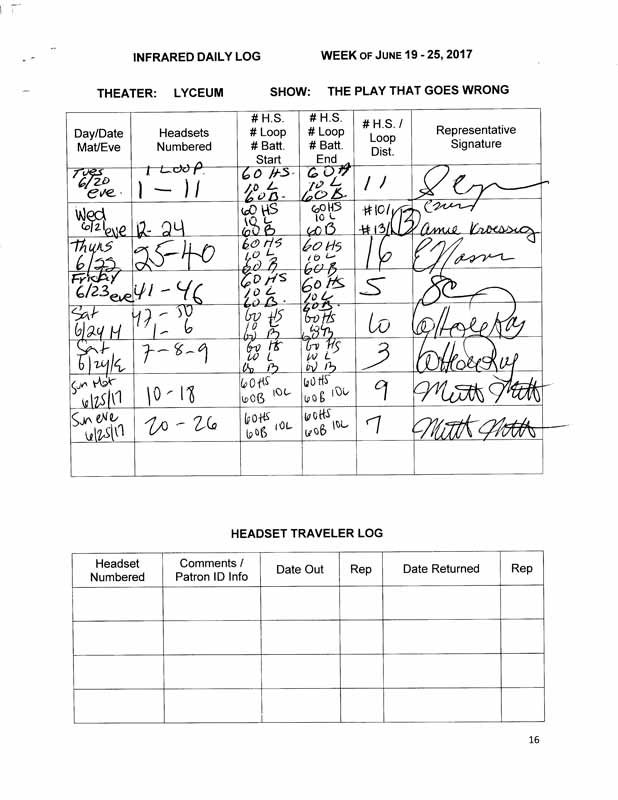 INFRARED DAILY LOG WEEK OF JUNE 19 - 25, 2017
THEATER: LYCEUM SHOW: THE PLAY THAT GOES WRONG
Day/Date Mat/Eve Headsets Numbered # H.S. # Loop # Batt. Start # H.S. # Loop # Batt. End # H.S. / Loop Dist. Representative Signature
Tues 6/20 eve. 1 LOOP. 1 - 11 60 HS. 10 L 60B. 60 H 10 L 60B. 11
Wed 6/21 eve 12 - 24 60 HS 10 L 60 B 60HS 10 L 60 B
Thurs 6/22 25-40 60 HS 10 L 60 B 60 HS 10 L 60 B 16
Friday 6/23 eve 41 - 46 60 HS 10 L 60 B. 60 HS 10 L 60B. 5
Sat 6/24 M 47 - 50 1 - 6 60 HS 10 L 60 B 60 HS 10 L 60 B 10
Sat 6/24/ 7-8-9 60 HS 10 L 60 B 60 HS 10 L 60 B 3
Sun Mat 6/25/17 10 - 18 60HS 60B 10L 60HS 60B 10L 9
Sun eve 6/25/17 20 - 26 60HS 60B 10L 60HS 60B 10L 7
HEADSET TRAVELER LOG
Headset Numbered Comments / Patron ID Info Date Out Rep Date Returned Rep
16